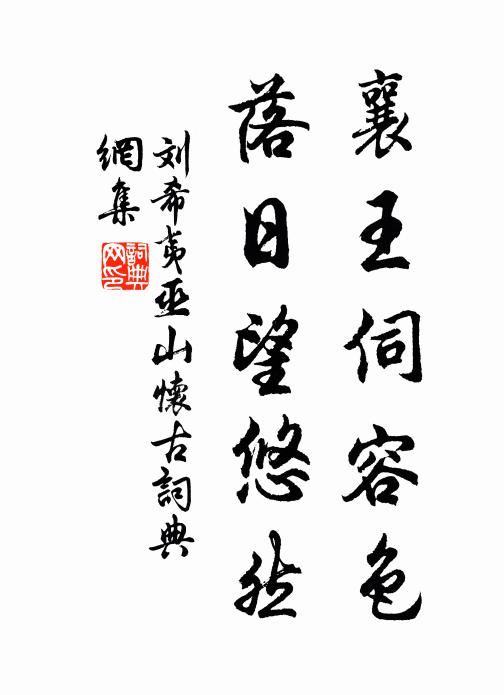 襄王伺容色
落日望悠然
刘希夷巫山懷古詞典
網集
詞典网印